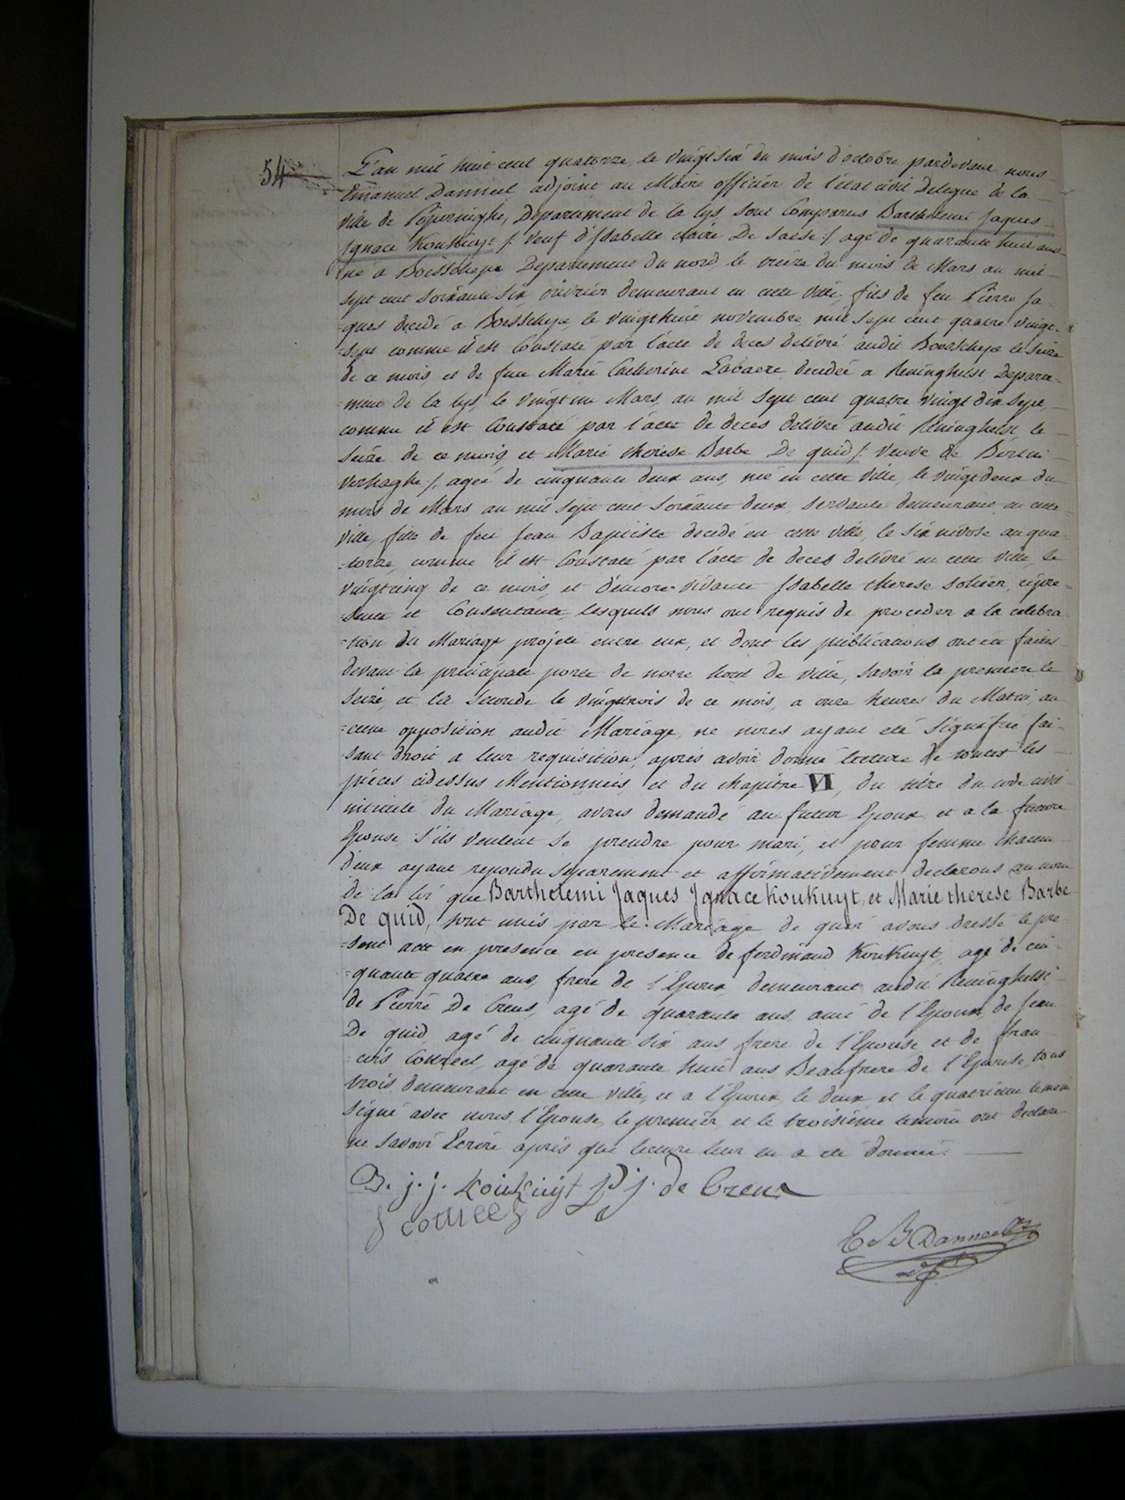 54
L'an mil huit cent quatorze, le vingt six du mois d'octobre pardevant nous
Emanuel Danneel adjoint au Maire officier de l'état civil delegué de la
ville de Poperinghe, Departement de la Lys sont Comparus Barthelemi Jaques
Ignace Koukuyt / veuf d'Isabelle claire De Saese / agé de quarante huit ans
né a Boisschepe Departement du nord, le treize du mois de Mars an mil
sept cent soixante six ouvrier demeurant en cette ville, fils de feu Pierre Ja-
ques decedé a Boisschepe, le vingt huit novembre mil sept cent quatre vingt
-sept comme il est Constaté par l'acte de deces delivré audit Boisschepe le seize
de ce mois et de feue Marie Catherine decedée a Reninghelst Departe-
-ment de la Lys, le vingt un Mars an mil sept cent quatre vingt dix sept
comme il est Constaté par l'acte de deces delivré audit Reninghelst le
Seize de ce mois et Marie therese Barbe De quid / veuve de
Verhaghe / ageé de cinquante deux ans, née en cette ville, le vingt deux du
mois de Mars an mil sept cent soixante deux, servante demeurant en cette
ville, fille de feu Jean Baptiste decedé en cette ville, le six nivose an qua-
-torze, comme il est Constaté par l'acte de deces delivré en cette ville, le
vingt cinq de ce mois, et d'encore vivante Isabelle therese cipre-
sente et Consentante, lesquels nous ont requis de proceder a la celebra-
-tion du Mariage projeté entre eux, et dont les publications ont eu faites
devant la principale porte de notre hotel de ville, savoir la premiere le
seize, et la seconde le vingt trois de ce mois, a onze heures du Matin, au-
-cune opposition audit Mariage, ne nous ayant été signifié fai-
-sant droit a leur requisition, après avoir donné lecture de toutes les
pièces cidessus Mentionneés et du chapitre VI, du titre du code civil
intitulé du Mariage, avons demandé au futur Epoux et a la future
Epouse s'ils veulent se prendre pour mari, et pour femme chacun
d'eux ayant repondu separement et affirmativement declarons au nom
de la loi que Barthelemi Jaques Ignace Koukuyt, et Marie therese Barbe
De quid, sont unis par le Mariage de quoi avons dressé le pre-
-sent acte en presence en presence de ferdinand Koukuyt, agé de cin-
-quante quatre ans, frere de l'Epoux, demeurant audit Reninghelst
de Pierre De Creus, agé de quarante ans, ami de l'Epoux, de Jean
De quid agé de cinquante six ans frere de l'Epouse et de fran-
-cois agé de quarante huit ans Beaufrere de l'Epouse, tous
trois demeurant en cette ville, et a l'Epoux le deux et le quatrieme temoin
signé avec nous, l'Epouse, le premier et le troisième temoin ont declaré
ne savoir Ecrire après que lecture leur en a été donnée.
B. j. j. Koukuyt P j. de Creus
E B Danneel